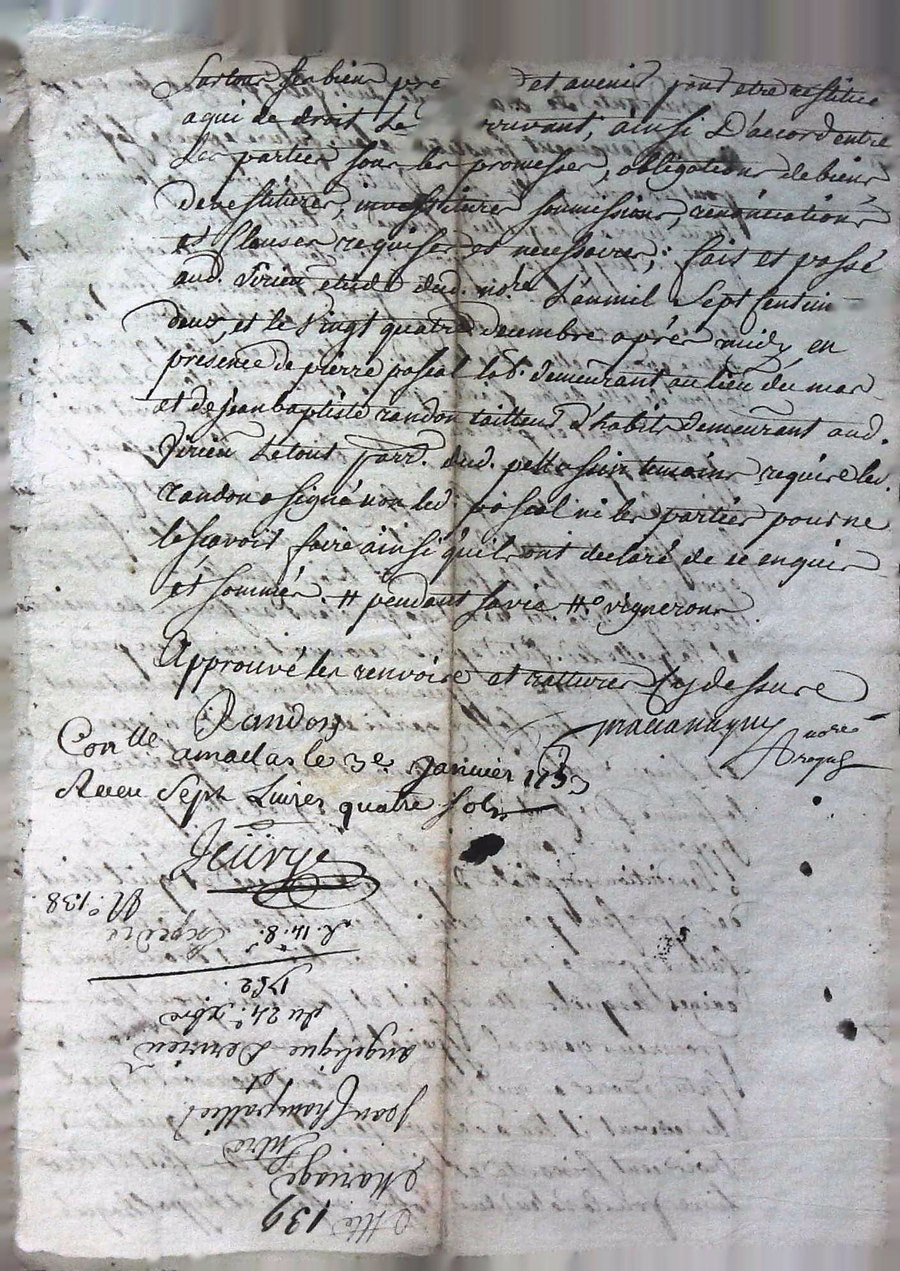 Sur tous ses biens pre et avenir pour etre restitué
a qui de droit Le arrivant, ainsi D'accord entre
Les parties sous les promesses, obligations de biens
devestitures, investitures soumissions, renonciations
et Clauses requises et necessaires; fait et passé
aud. Virieu etude dud. no.re L'an mil Sept Cent cin
deux, et le vingt quatre decembre après midy en
presence de pierre pascal lab.r demeurant au lieu du mas
et de jean baptiste randon tailleur d'habits demeurant aud.
Virieu Le tout parr. dud. temoins requis led.
randon a signé non led pascal ni les parties pour ne
le sçavoir faire ainsi qu'ils ont declaré de ce enquis
et sommés. # pendant sa vie #o vignerons
Approuvé les renvois et ratures Cy dessus
Randon
nore
Con.lle a malas le 3e Janvier 1753
Receu Sept Livres quatre Sols
N.o 138
Expédié
L. 14. 8.
du 24.e xbre
1752
Mariage
Entre
Jean Champallie
et
angelique Dervieu
139